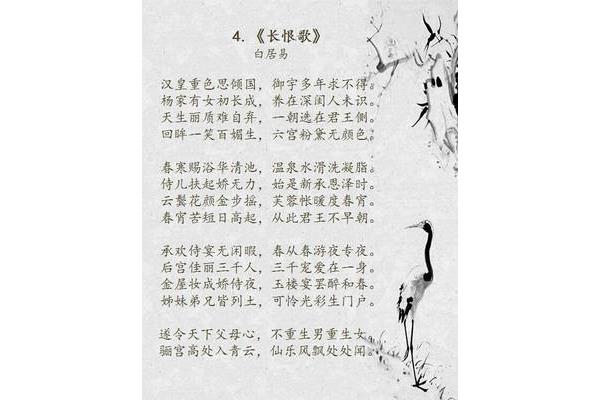 4.《长恨歌》
白居易
汉皇重色思倾国，御宇多年求不得。
杨家有女初长成，养在深闺人未识。
天生丽质难自弃，一朝选在君王侧。
回眸一笑百媚生，六宫粉黛无颜色。
春寒赐浴华清池，温泉水滑洗凝脂。
侍儿扶起娇无力，始是新承恩泽时。
云鬓花颜金步摇，芙蓉帐暖度春宵。
春宵苦短日高起，从此君王不早朝。
承欢侍宴无闲暇，春从春游夜专夜。
后宫佳丽三千人，三千宠爱在一身。
金屋妆成娇侍夜，玉楼宴罢醉和春。
姊妹弟兄皆列土，可怜光彩生门户。
遂令天下父母心，不重生男重生女。
骊宫高处入青云，仙乐风飘处处闻。